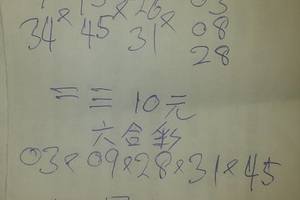 34×45×31× 08
28
二三10元
六合彩
03×09×28×31×45